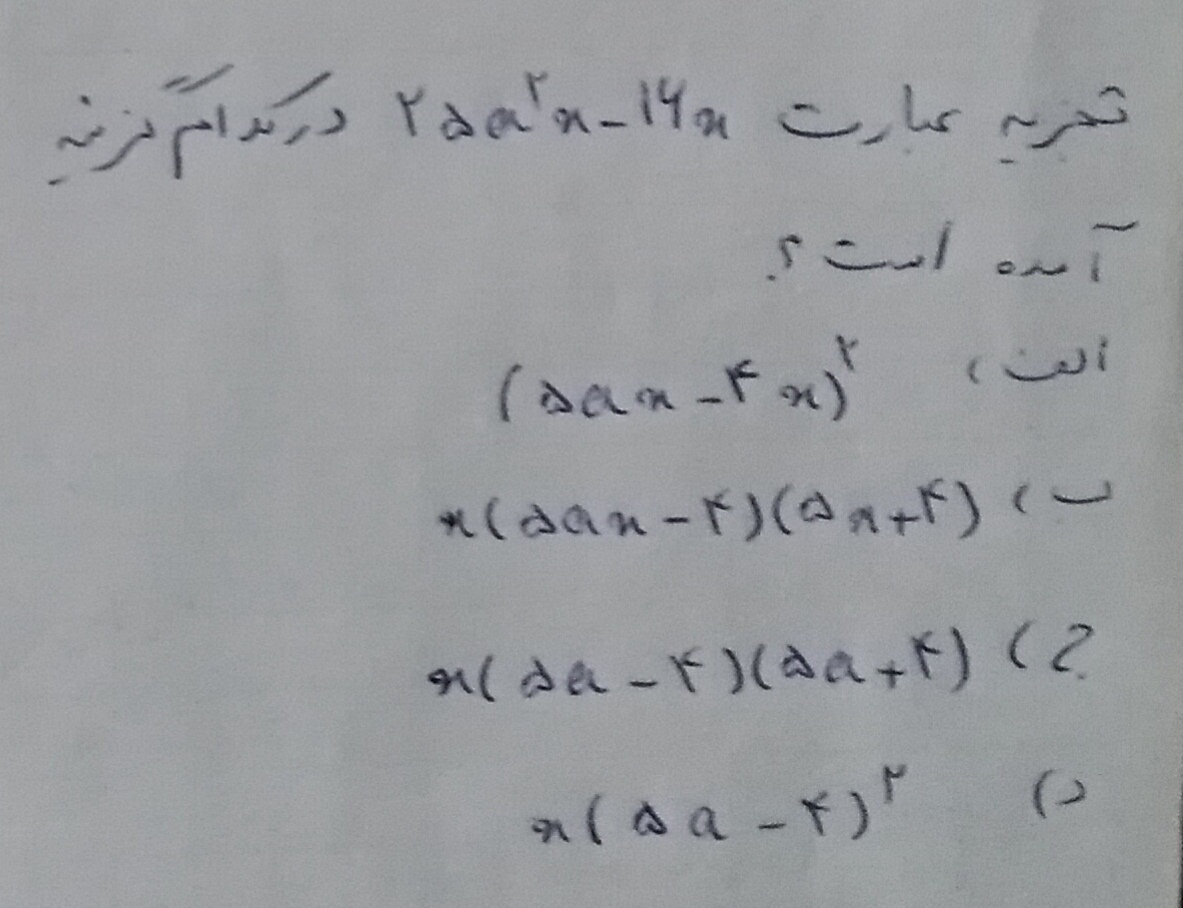 تجزیه عبارت ۲۵a²x-۱۶x در کدام گزینه
آمده است؟
الف) (۵ax-۴x)²
ب) x(۵ax-۴)(۵x+۴)
ج) x(۵a-۴)(۵a+۴)
د) x(۵a-۴)²